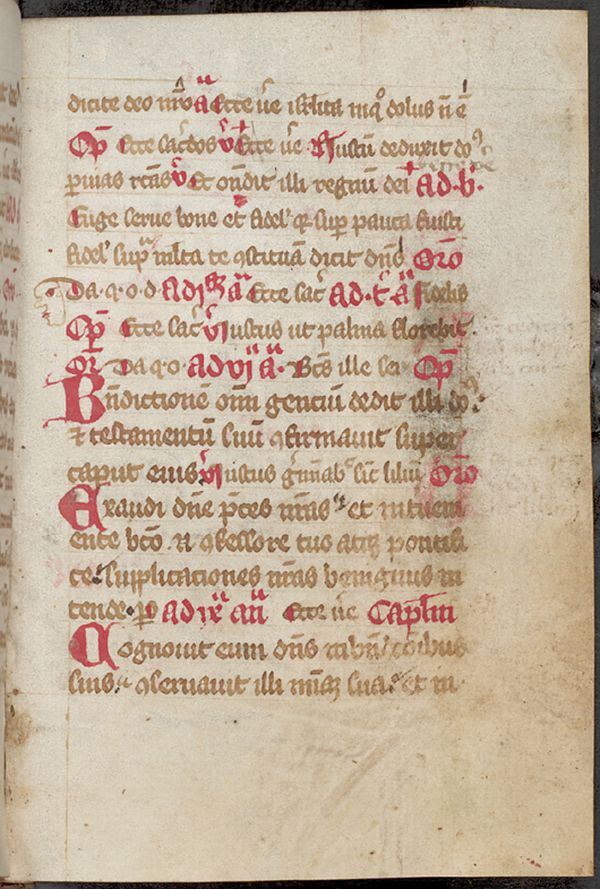 dicite deo nr̄o a Ecce ūe isrl̄ita in q̊ dolus n̄ ē
Cp̄ Ecce sac̄dos v̄ Ecce ūe R Iustū deduxit do
p̄ uias rc̄tas v̄ Et on̄dit illi regnū dei ad · b̄ ·
Euge serue bone et fidel' qr sup pauca fuisti
fidel' sup̄ ml̄ta te ɔstituam dicit dn̄s Oro
Da · q · o · d ad iiiā ā Ecce sac̄ ad · c̄ ā fidelis
Cp̄ Ecce sac̄ v̄ Iustus ut palma florebit
Or̄ Da q · o · ad vi ā · Bt̄s ille ser Cp̄
Bn̄dictionē om̄i gentiū dedit illi do
⁊ testamentū suū ɔfirmauit super
caput eius v̄ Iustus ḡminab̄ sic̄ liliū Oro
Exaudi dn̄e p̄ces nr̄as et interueni
ente bt̄o N ɔfessore tuo atq̨ pontifi
ce supplicationes nr̄as benignus in
tende · p̄ ad ix an̄ Ecce ūe Capl̄m
Cognouit eum dn̄s in bn̄dictōibus
suis ɔseruauit illi mīaʒ suā et in